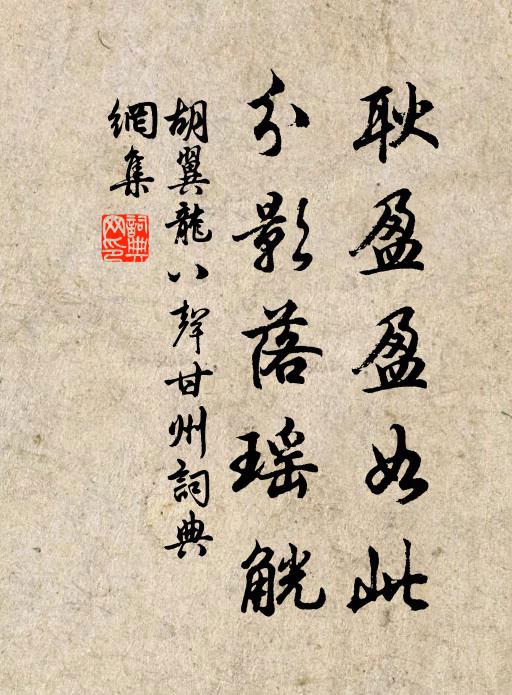 耿盈盈如此
分影落瑤觥
胡翼龍八聲甘州詞典
網集
詞典
网印